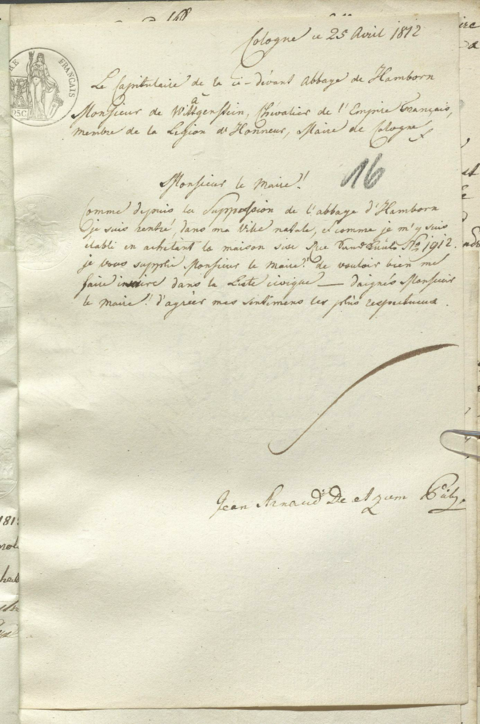 Cologne ce 25 Avril 1812
Le Capitulaire de la ci-devant abbaye de Hamborn
à
Monsieur de Wittgenstein, Chevalier de l'Empire français,
membre de la Légion d'Honneur, Maire de Cologne
16
Monsieur le Maire!
Comme depuis la Suppression de l'abbaye d'Hamborn
je suis rentré, dans ma ville natale, et comme je m'y suis
établi en achetant la maison sise Rue No 1912.
je vous supplie Monsieur le Maire! de vouloir bien me
faire inscrire dans la Liste civique — daignés Monsieur
le Maire! d'agréer mes sentimens les plus respectueux.
Jean Arnaud De et zum
FRANÇAIS